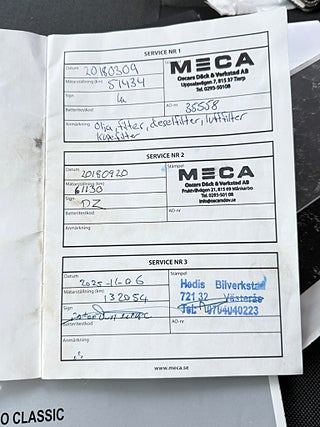 SERVICE NR 1
Datum 20180309
Mätarställning (km) 51434
Sign
Batteritestkod
Anmärkning Olja, filter, deselfilter, luftfilter
Stämpel
MECA
Oscars Däck & Verkstad AB
Uppsalavägen 7, 815 37 Tierp
Tel. 0293-50108
AO-nr 35558
SERVICE NR 2
Datum 20180920
Mätarställning (km) 61130
Sign DZ
Batteritestkod
Anmärkning
MECA
Oscars Däck & Verkstad AB
Tel. 0293-501 08
AO-nr
SERVICE NR 3
Datum 2025-11-06
Mätarställning (km) 132054
Sign
Batteritestkod
Anmärkning
Stämpel
Hedis Bilverkstad
721 32 Västerås
Tel: 0704040223
AO-nr
www.meca.se
O CLASSIC